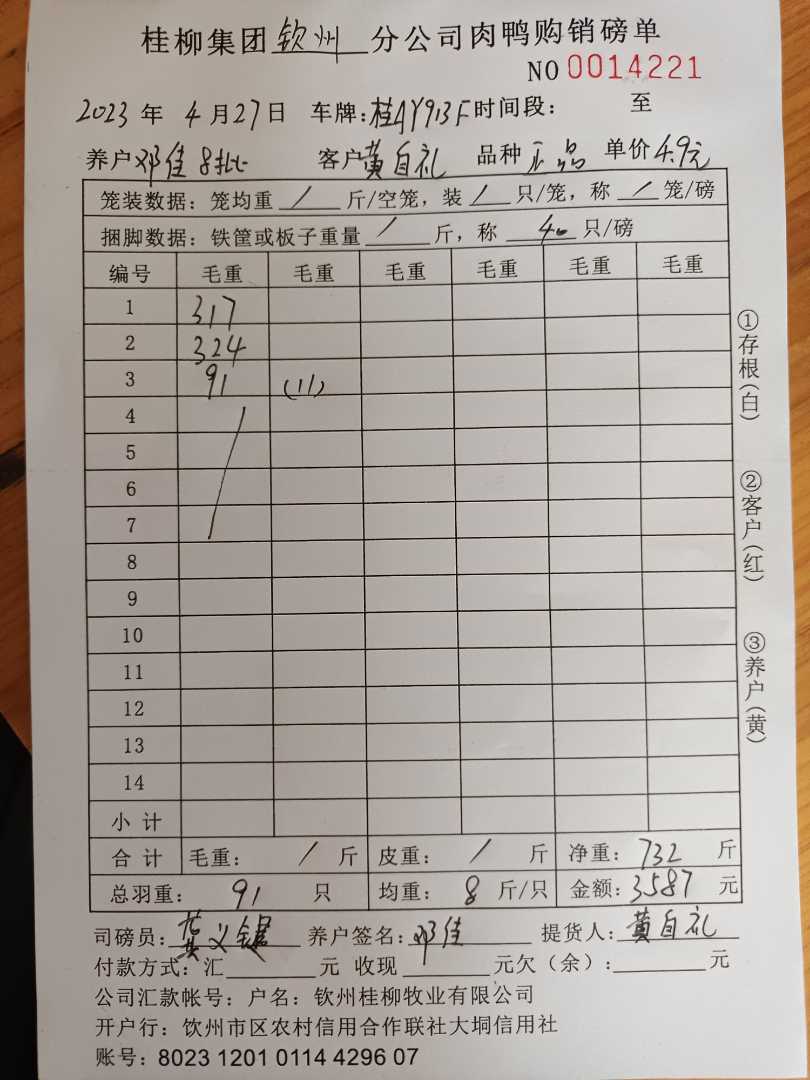 桂柳集团钦州分公司肉鸭购销磅单
NO 0014221
2023年4月27日 车牌:桂AY913F 时间段: 至
养户邓佳8批 客户黄自礼 品种正品 单价4.9元
笼装数据：笼均重 / 斤/空笼，装 / 只/笼，称 / 笼/磅
捆脚数据：铁筐或板子重量 / 斤，称 40 只/磅
编号 毛重 毛重 毛重 毛重 毛重 毛重
1 317
2 324
3 91 (11)
4
5
6
7
8
9
10
11
12
13
14
小计
合计 毛重： / 斤 皮重： / 斤 净重：732 斤
总羽重： 91 只 均重： 8 斤/只 金额：3587 元
司磅员：黄义锟 养户签名：邓佳 提货人：黄自礼
付款方式：汇 元 收现 元欠（余）： 元
公司汇款帐号：户名：钦州桂柳牧业有限公司
开户行：钦州市区农村信用合作联社大垌信用社
账号：8023 1201 0114 4296 07
①存根(白)
②客户(红)
③养户(黄)